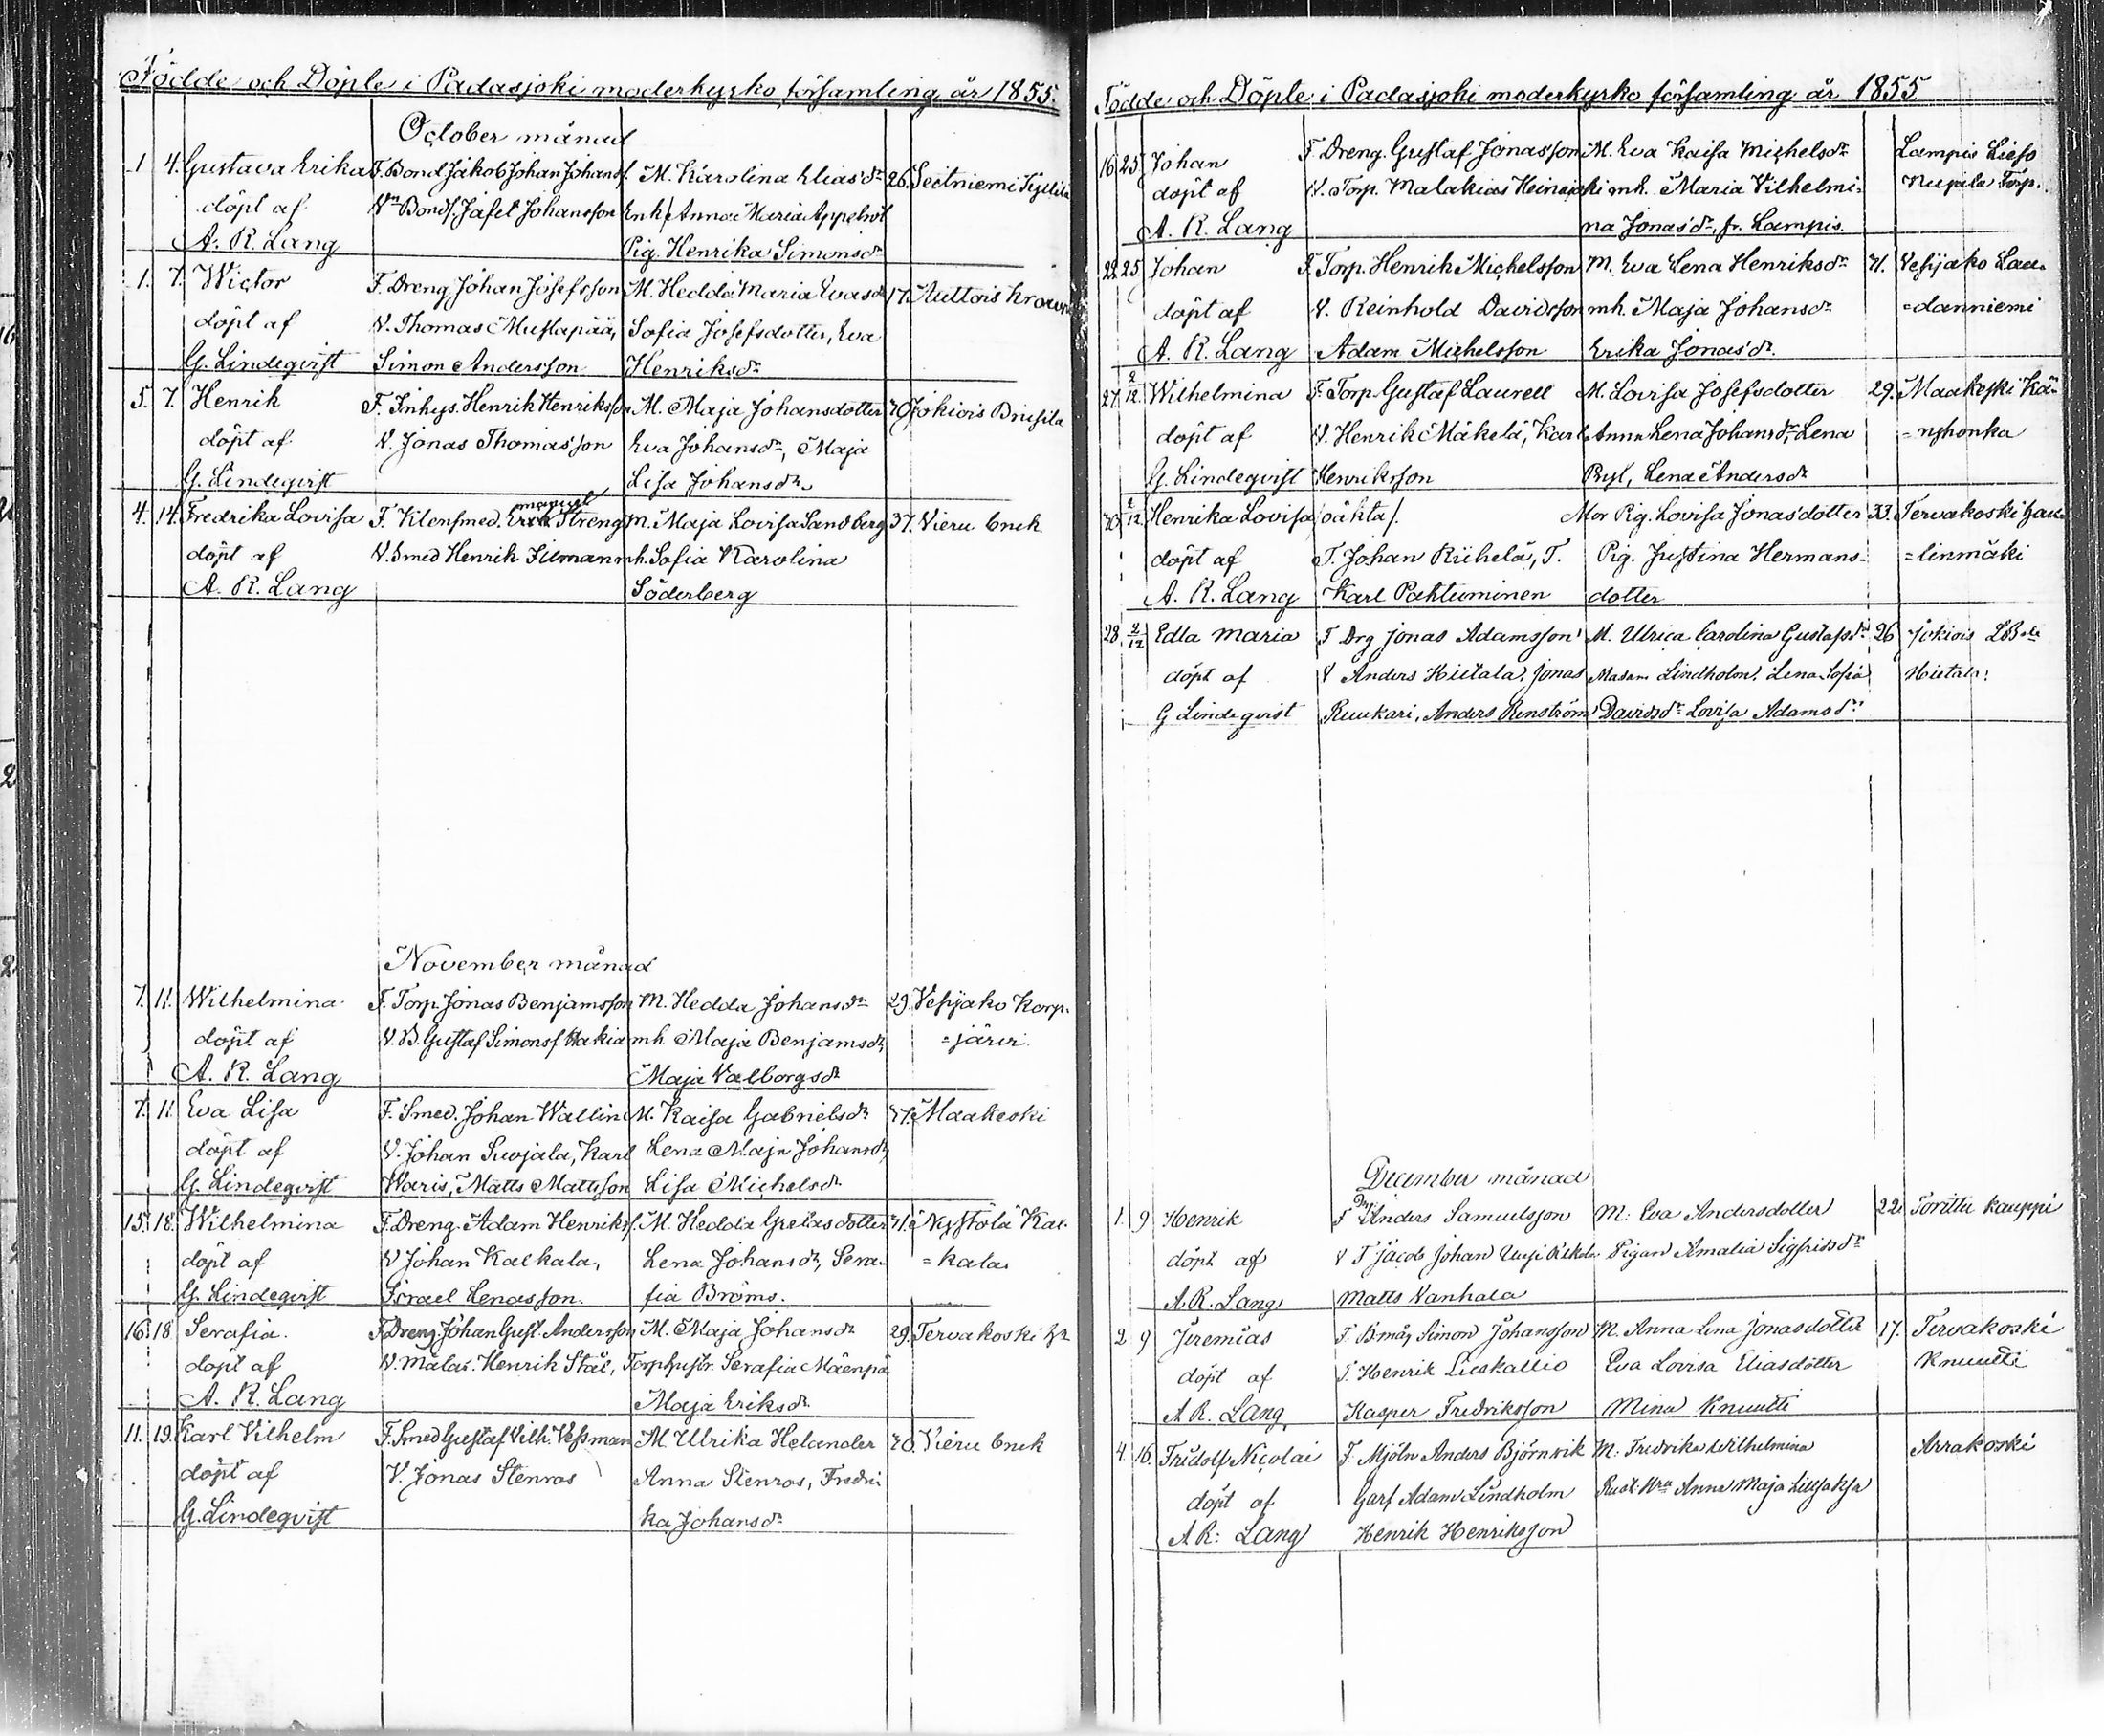 Födde och Döple i Padasjoki moderkyrko församling år 1855.
October månad
1 4. Gustava Erika F. Bond Jakob Johan Johans M. Karolina Elias dr 26. Seitniemi
döpt af Vn Bonds. Jafet Johansson Enk. Anna Maria Appelrot
A. R. Lang Pig. Henrika Simonsdr
1. 7. Wictor F. Dreng Johan Josefsson M. Hedda Maria Evasdr 17. Auttois
döpt af V. Thomas Mustapää, Sofia Josefsdotter, Eva
G. Lindeqvist Simon Andersson Henriksdr
5. 7. Henrik F. Inhys. Henrik Henriksson M. Maja Johansdotter Jokiois
döpt af V. Jonas Thomasson Eva Johansdr, Maja
G. Lindeqvist Lisa Johansdr
manuel
4. 14. Fredrika Lovisa F. Klensmed. Streng M. Maja Lovisa Sandberg 37. Vieru bruk
döpt af V. Smed Henrik Filman mh. Sofia Karolina
A. R. Lang Söderberg
November månad
7. 11. Wilhelmina F. Torp. Jonas Benjamsson M. Hedda Johansdr 29. Vesijako Korp-
döpt af V. B. Gustaf Simons Hakia mh. Maja Benjamsdr =järvi
A. R. Lang Maja Valborgsdr
7. 11 Eva Lisa F. Smed. Johan Wallin M. Kaisa Gabrielsdr 41. Maakeski
döpt af V. Johan Suojala, Karl Lena Maja Johansdr,
G. Lindeqvist Waris, Matts Mattsson Lisa Michelsdr
15. 18. Wilhelmina F. Dreng. Adam Henriks. M. Hedda Gretasdotter 41. Nystölä Kal-
döpt af V Johan Kalkala, Lena Johansdr, Sera- =kala
G. Lindeqvist Israel Lenasson. fia Broms.
16. 18 Serafia. F. Dreng. Johan Gust. Andersson M. Maja Johansdr 29. Tervakoski
döpt af V. målar. Henrik Stål, Torp hustr. Serafia Mäenpä
A. R. Lang Maja Eriksdr
11. 19. Karl Vilhelm F. Smed Gustaf Vilh. Vessman M. Ulrika Helander Vieru bruk
döpt af V. Jonas Stenros Anna Stenros, Fredri
G. Lindeqvist ka Johansdr
Födde och Döple i Padasjoki moderkyrko församling år 1855
16 25. Johan F. Dreng. Gustaf Jonasson M. Eva Kaisa Michelsdr Lampis Lieso
döpt af V. Torp. Malakias Heinajoki mh. Maria Vilhelmi- Torp.
A. R. Lang na Jonasdr, fr. Lampis.
22. 25. Johan F. Torp. Henrik Michelsson M. Eva Lena Henriksdr 41. Vesijako Lau-
döpt af V. Reinhold Davidsson mh. Maja Johansdr =danniemi
A. R. Lang Adam Michelsson Erika Jonasdr.
27. 2/12 Wilhelmina F. Torp. Gustaf Laurell M. Lovisa Josefsdotter 29. Maakeski Kä-
döpt af V. Henrik Mäkelä, Karl Anna Lena Johansdr, Lena
G. Lindeqvist Henriksson Ryl, Lena Andersdr
2/12 Henrika Lovisa /oäkta/. Mor Pig. Lovisa Jonasdotter 33. Tervakoski
döpt af T. Johan Riihelä, T. Pig. Justina Hermans- =linmäki
A. R. Lang Karl Pahtuminen dotter
28. 2/12 Edla maria F Drg Jonas Adamsson M. Ulrica Carolina Gustafsdr 26 Jokiois
döpt af V Anders Hietala, Jonas Madam Lindholm, Lena Sofia Hietala.
G Lindeqvist Ruukari, Anders Renström Davidsdr Lovisa Adamsdr
December månad
1. 9 Henrik F Drg Anders Samuelsson M. Eva Andersdotter 22. Torittu Kauppi
döpt af V T Jacob Johan Uusi Pigan Amalia Sigfridsdr
A. R. Lang Matts Vanhala
2 9 Jeremias F. Simon Johansson M. Anna Lena Jonasdotter 17. Tervakoski
döpt af Henrik Lieskallio Eva Lovisa Eliasdotter Knuutti
A R. Lang Kasper Fredriksson Mina Knuutti
4. 16. Fridolf Nicolai F. Mjöln Anders Björnvik M. Fredrika Wilhelmina Arrakoski
döpt af Garf Adam Lindholm Anna Maja
A R: Lang Henrik Henriksson